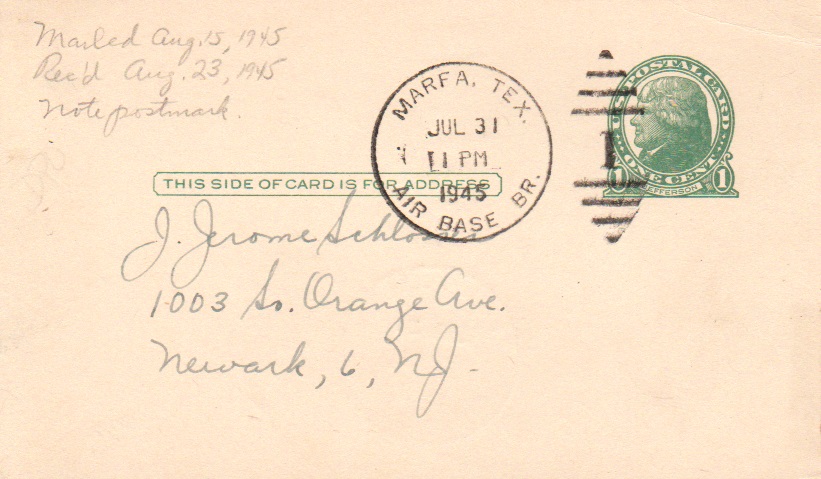 Mailed Aug. 15, 1945
Rec'd Aug. 23, 1945
Note postmark.
MARFA, TEX.
JUL 31
11 PM
1945
AIR BASE BR.
1
U.S. POSTAL CARD
ONE CENT
1 JEFFERSON 1
THIS SIDE OF CARD IS FOR ADDRESS
J. Jerome Schlosser
1003 So. Orange Ave.
Newark, 6, NJ.